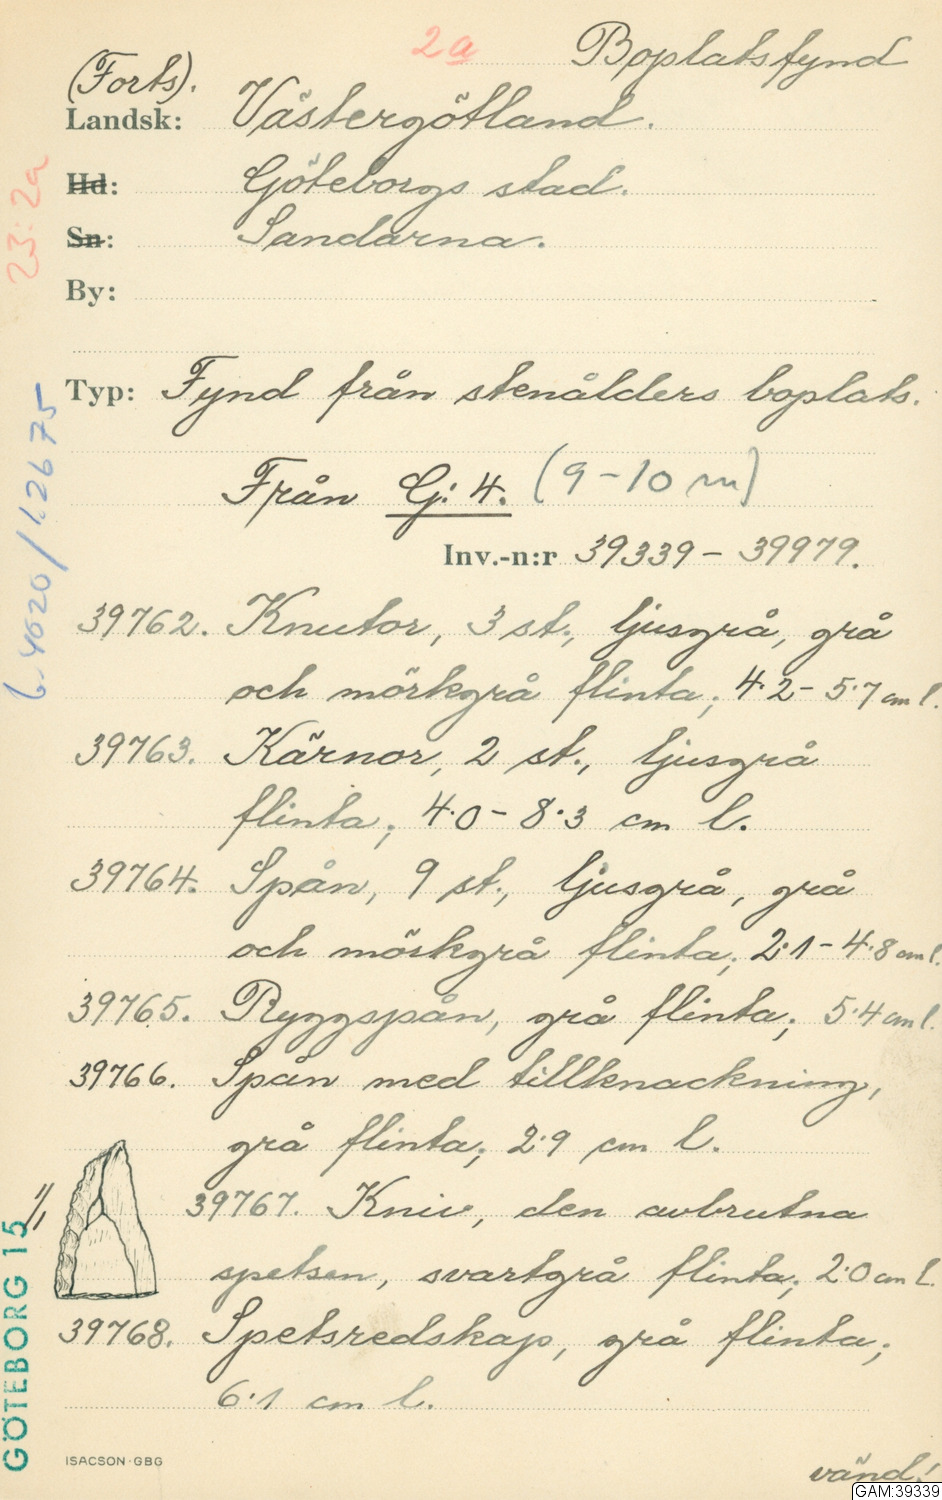 2a Boplatsfynd
(Forts).
Landsk: Västergötland.
Hd: Göteborgs stad.
Sn: Sandarna.
By:
Typ: Fynd från stenålders boplats.
Från G: 4. (9-10 m)
Inv.-n:r 39339 - 39979.
39762. Knutor, 3 st., ljusgrå, grå
och mörkgrå flinta; 4.2 - 5.7 cm l.
39763. Kärnor, 2 st., ljusgrå
flinta; 4.0 - 8.3 cm l.
39764. Spån, 9 st., ljusgrå, grå
och mörkgrå flinta; 2.1 - 4.8 cm l.
39765. Ryggspån, grå flinta; 5.4 cm l.
39766. Spån med tillknackning,
grå flinta; 2.9 cm l.
1/1
39767. Kniv, den avbrutna
spetsen, svartgrå flinta; 2.0 cm l.
39768. Spetsredskap, grå flinta;
6.1 cm l.
ISACSON·GBG
vänd!
GAM:39339
23:2a
6.4620/1.2675
GÖTEBORG 15